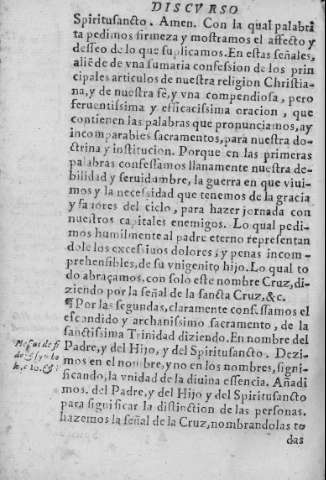 DISCVRSO
Spiritusancto. Amen. Con la qual palabri
ta pedimos firmeza y mostramos el affecto y
desseo de lo que suplicamos. En estas señales,
aliẽde de vna sumaria confession de los prin
cipales articulos de nuestra religion Christia-
na, y de nuestra fè, y vna compendiosa, pero
feruentissima y efficacissima oracion, que
contienen las palabras que pronunciamos, ay
incomparables sacramentos, para nuestra do-
ctrina y institucion. Porque en las primeras
palabras confessamos llanamente nuestra de-
bilidad y seruidumbre, la guerra en que viui-
mos y la necessidad que tenemos de la gracia
y fauores del cielo, para hazer jornada con
nuestros capitales enemigos. Lo qual pedi-
mos humilmente al padre eterno representan
dole los excessiuos dolores; y penas incom-
prehensibles, de su vnigenito hijo. Lo qual to
do abraçamos, con solo este nombre Cruz, di-
ziendo por la señal de la sancta Cruz, &c.
¶Por las segundas, claramente confessamos el
escondido y archanissimo sacramento, de la
sanctissima Trinidad diziendo. En nombre del
Padre, y del Hijo, y del Spiritusancto. Dezi-
mos en el nombre, y no en los nombres, signi-
ficando, la vnidad de la diuina essencia. Añadi
mos. del Padre, y del Hijo y del Spiritusancto
para significar la distinction de las personas.
hazemos la señal de la Cruz, nombrandolas to
das